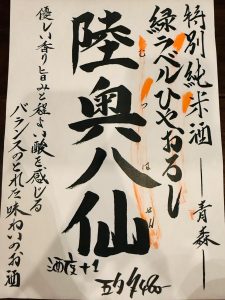 特別純米酒 ― 青森 ―
緑ラベルひやおろし
陸奥八仙
むつはっせん
優しい香り旨みと程よい酸を感じる
バランスのとれた味わいのお酒
酒度+1